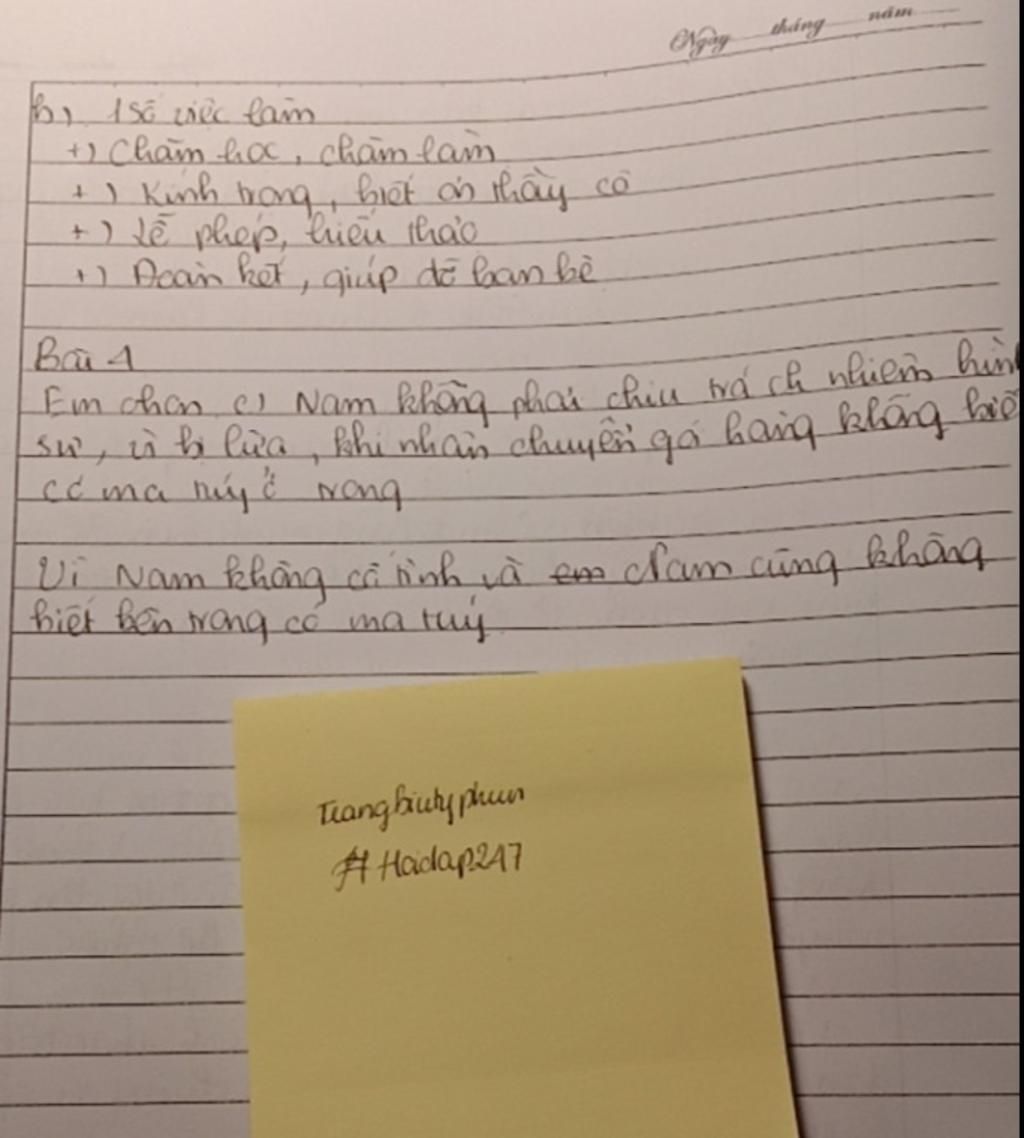 Ngày tháng năm
b) 1 số việc làm
+) Chăm học, chăm làm
+) Kính trọng, biết ơn thầy cô
+) Lễ phép, hiếu thảo
+) Đoàn kết, giúp đỡ bạn bè
Bài 4
Em chọn c) Nam không phải chịu trách nhiệm hình
sự, vì bị lừa, khi nhận chuyển gói hàng không biế
có ma túy ở trong
Vì Nam không cố tình và em Nam cũng không
biết bên trong có ma tuý
Trangbiutyphun
#Hoidap247